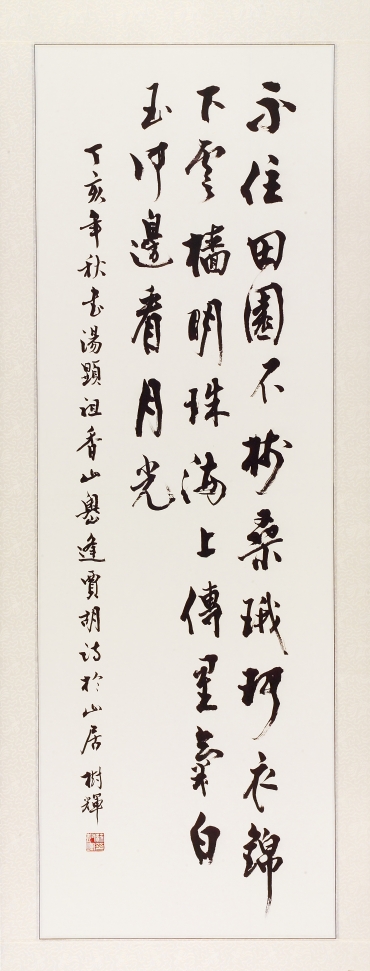 不住田園不樹桑珴珂衣錦
下雲檣明珠海上傳星氣白
玉河邊看月光
丁亥年秋書湯顯祖香山嶴逢賈胡詩於山居 樹輝